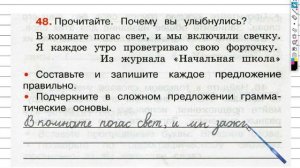 48. Прочитайте. Почему вы улыбнулись?
В комнате погас свет, и мы включили свечку.
Я каждое утро проветриваю свою форточку.
Из журнала «Начальная школа»
• Составьте и запишите каждое предложение
правильно.
• Подчеркните в сложном предложении грамма-
тические основы.
В комнате погас свет, и мы зажг